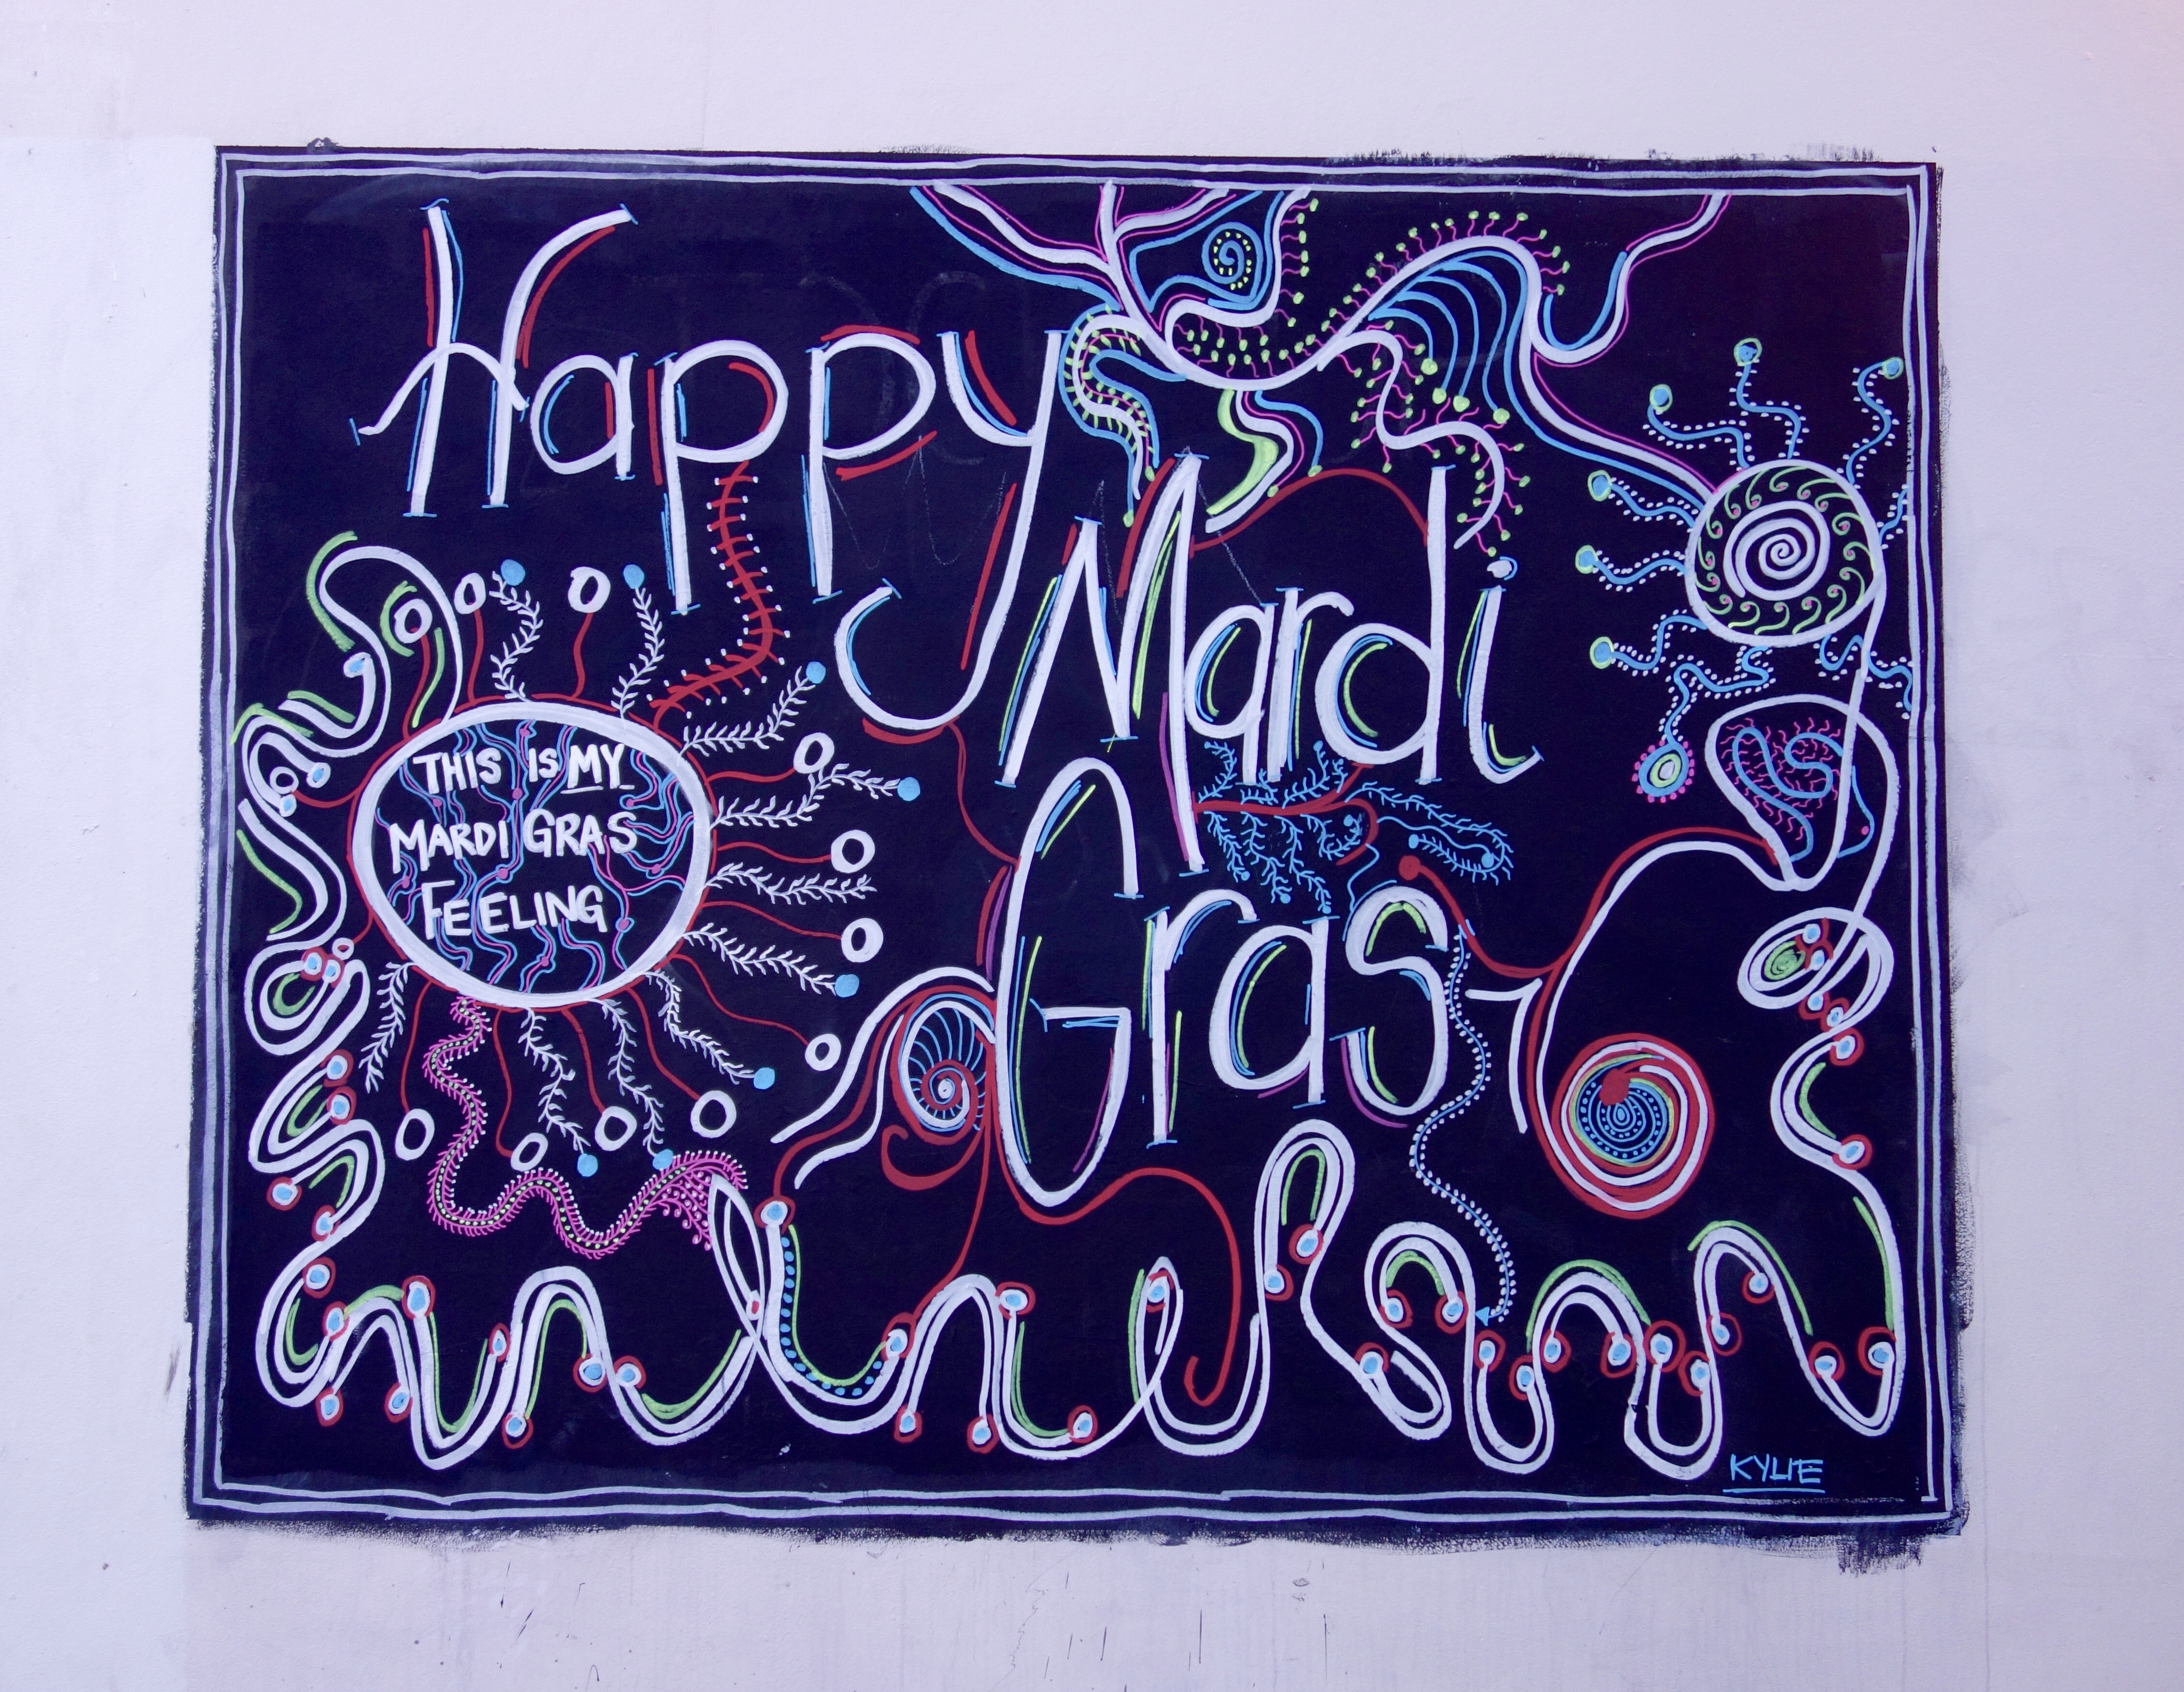 Happy
Mardi
Gras
THIS IS MY
MARDI GRAS
FEELING
KYLIE